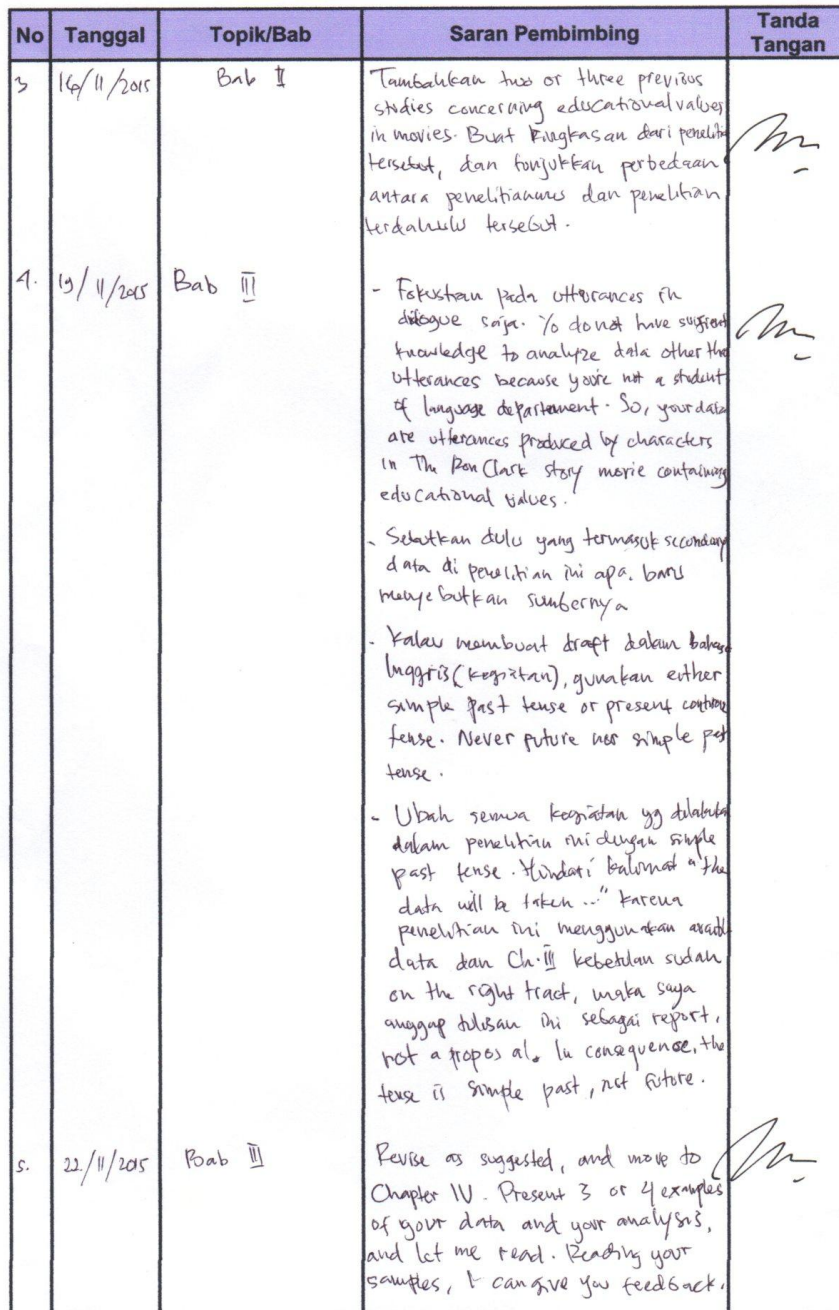 No Tanggal Topik/Bab Saran Pembimbing Tanda Tangan
3 16/11/2015 Bab II Tambahkan two or three previous
studies concerning educational values
in movies. Buat ringkasan dari peneliti
tersebut, dan tunjukkan perbedaan
antara penelitianmu dan penelitian
terdahulu tersebut.
4. 19/11/2015 Bab III - Fokuskan pada utterances in
dialogue saja. Yo do not have sufficient
knowledge to analyze data other the
utterances because you're not a student
of language departement. So, your data
are utterances produced by characters
in The Ron Clark story movie containing
educational values.
- Sebutkan dulu yang termasuk secondary
data di penelitian ini apa. baru
menyebutkan sumbernya
- Kalau membuat draft dalam bahasa
Inggris (kegiatan), gunakan either
simple past tense or present
tense. Never future nor simple past
tense.
- Ubah semua kegiatan yg dilakukan
dalam penelitian ini dengan simple
past tense. Hindari kalimat "the
data will be taken ..." karena
penelitian ini menggunakan
data dan Ch. III kebetulan sudah
on the right tract, maka saya
anggap tulisan ini sebagai report,
not a proposal. In consequence, the
tense is simple past, not future.
5. 22/11/2015 Bab III Revise as suggested, and move to
Chapter IV. Present 3 or 4 examples
of your data and your analysis,
and let me read. Reading your
samples, I can give you feedback.